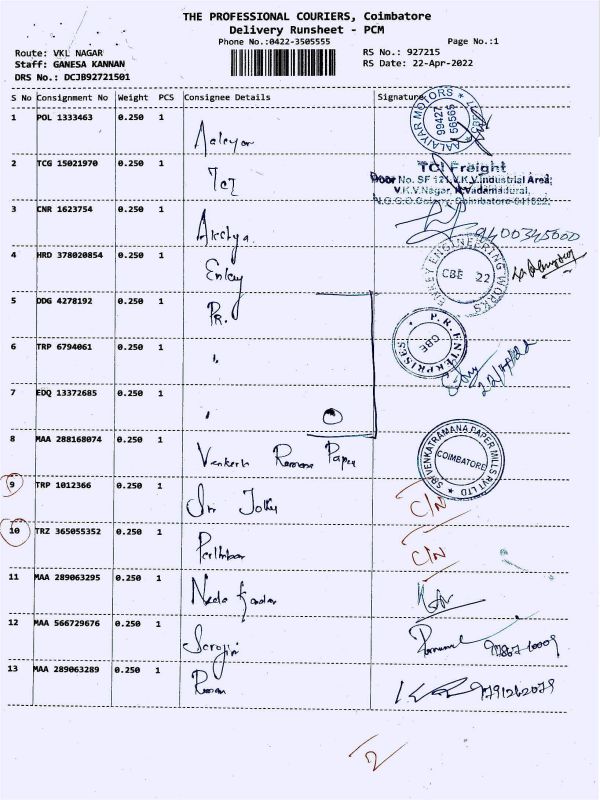 THE PROFESSIONAL COURIERS, Coimbatore
Delivery Runsheet - PCM
Phone No.:0422-3505555 Page No.:1
Route: VKL NAGAR RS No.: 927215
Staff: GANESA KANNAN RS Date: 22-Apr-2022
DRS No.: DCJB92721501
S No Consignment No Weight PCS Consignee Details Signature
1 POL 1333463 0.250 1
AALAIYAR MOTORS
99427
56565
2 TCG 15021970 0.250 1 TCI
TCI Freight
Door No. SF 121, V.K.V.Industrial Area,
V.K.V.Nagar, K.Vadamadurai,
N.G.G.O.Colony, Coimbatore-641022,
3 CNR 1623754 0.250 1 Akchya
9400345000
4 HRD 378020854 0.250 1 Enkey
ENKEY ENGINEERING WORKS
CBE 22
5 DDG 4278192 0.250 1 P.R.
P.R. ENTERPRISES
CBE
6 TRP 6794061 0.250 1 "
7 EDQ 13372685 0.250 1 "
8 MAA 288168074 0.250 1 Venkata Ramana Paper
SRI VENKATRAMANA PAPER MILLS PVT LTD
COIMBATORE
9 TRP 1012366 0.250 1 Sri Jothi C/N
10 TRZ 365055352 0.250 1 C/N
11 MAA 289063295 0.250 1
12 MAA 566729676 0.250 1 Sarojini
13 MAA 289063289 0.250 1 9791262079
2